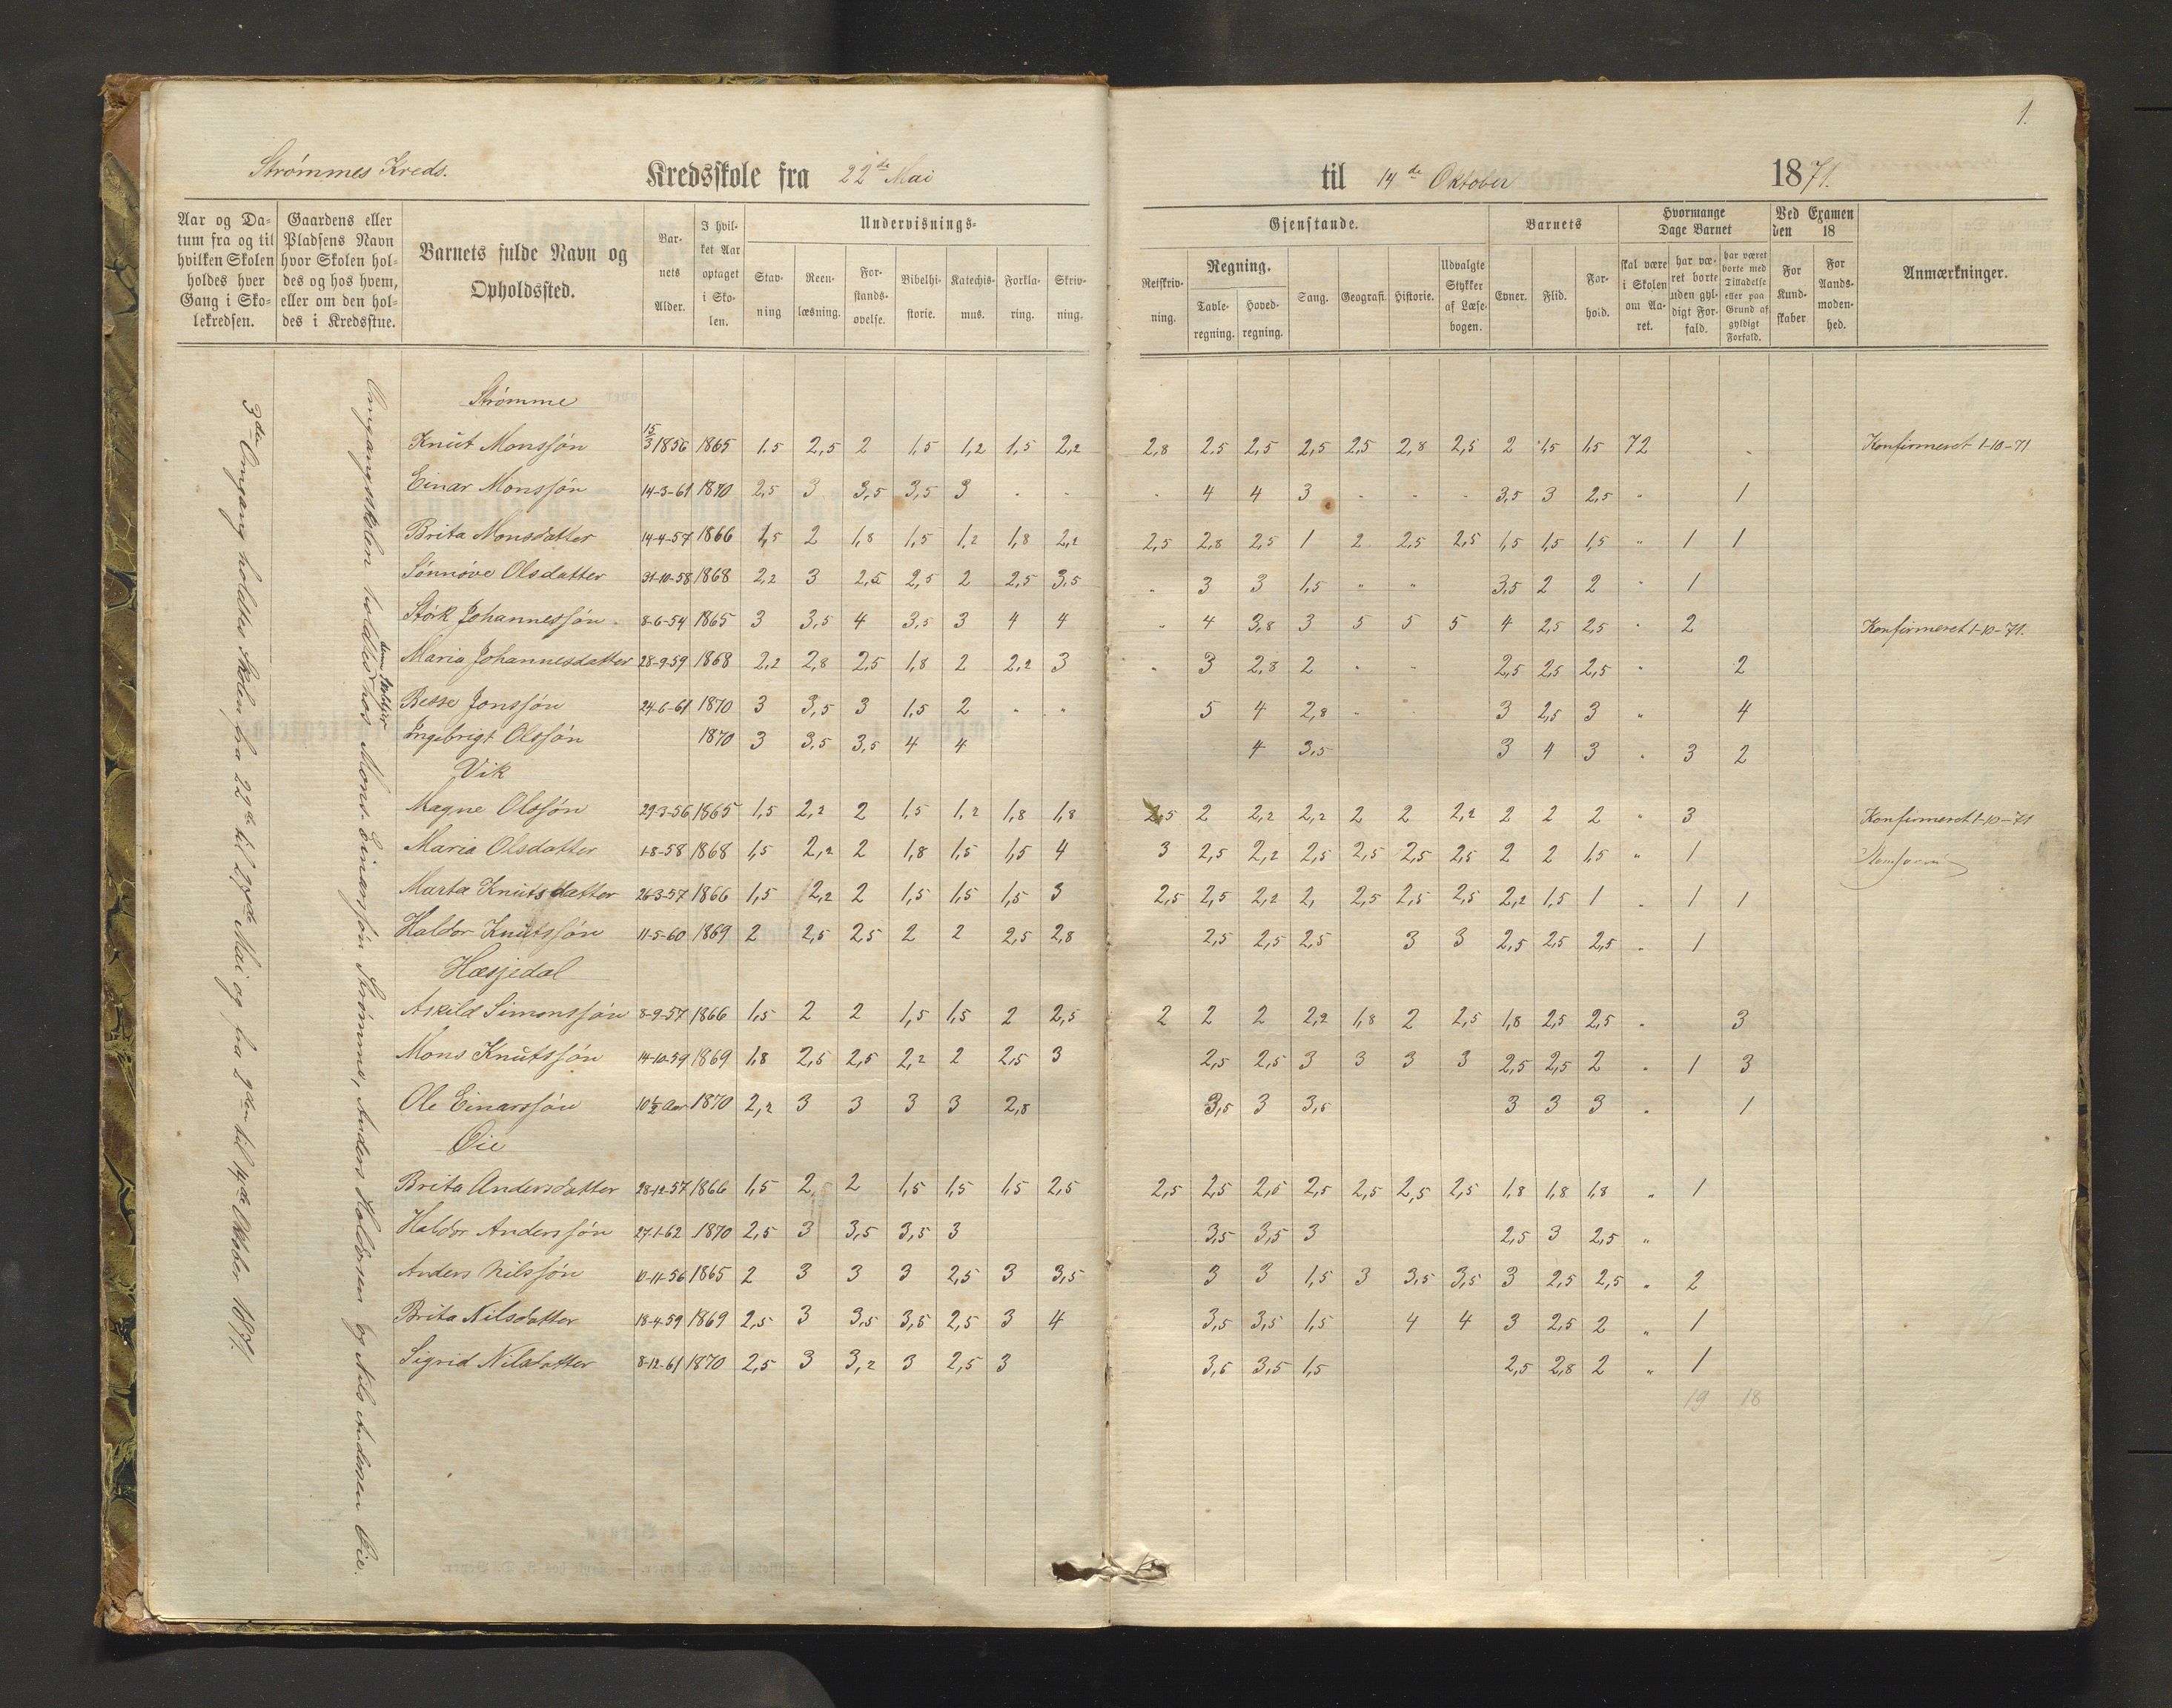 1.
Strømmes Kreds. Kredsskole fra 22de Mai til 14de Oktober 1871.
Aar og Datum fra og til hvilken Skolen holdes hver Gang i Skolekredsen. | Gaardens eller Pladsens Navn hvor Skolen holdes og hos hvem, eller om den holdes i Kredsstue. | Barnets fulde Navn og Opholdssted. | Barnets Alder. | I hvilket Aar optaget i Skolen. | Undervisnings- Gjenstande. | Barnets | Hvormange Dage Barnet | Ved Examen den 18 | Anmærkninger.
Stavning | Reenlæsning. | Forstandsøvelse. | Bibelhistorie. | Katechismus. | Forklaring. | Skrivning. | Retskrivning. | Regning. Tavleregning. Hovedregning. | Sang. | Geografi. | Historie. | Udvalgte Stykker af Læsebogen. | Evner. | Flid. | Forhold. | skal være i Skolen om Aaret. | har været borte uden gyldigt Forfald. | har været borte med Tilladelse eller paa Grund af gyldigt Forfald. | For Kundskaber | For Aandsmodenhed.
3die Omgang holdtes Skolen fra 22de til 27de Mai og fra 2den til 14de Oktober 1871.
Omgangsskolen holdtes denne Skoletid hos Mons Einarssøn Strømme, Anders Haldorsen og Nils Andersen Øie.
Strømme
Knut Monssøn 15/3 1856 1865 1,5 2,5 2 1,5 1,2 1,5 2,2 2,8 2,5 2,5 2,5 2,5 2,8 2,5 2 1,5 1,5 72 Konfirmeret 1-10-71
Einar Monssøn 14-3-61 1870 2,5 3 3,5 3,5 3 - - - 4 4 3 - - - 3,5 3 2,5 " 1
Brita Monsdatter 14-4-57 1866 1,5 2 1,8 1,5 1,2 1,8 2,2 2,5 2,8 2,5 1 2 2,5 2,5 1,5 1,5 1,5 " 1 1
Sønnøve Olsdatter 31-10-58 1868 2,2 3 2,5 2,5 2 2,5 3,5 " 3 3 1,5 " " 3,5 2 2 " 1
Størk Johannessøn. 8-6-54 1865 3 3,5 4 3,5 3 4 4 " 4 3,8 3 5 5 5 4 2,5 2,5 " 2 Konfirmeret 1-10-71.
Maria Johannesdatter 28-9-59 1868 2,2 2,8 2,5 1,8 2 2,2 3 " 3 2,8 2 " " 2,5 2,5 2,5 " 2
Besse Jonssøn 24-6-61 1870 3 3,5 3 1,5 2 " " 5 4 2,8 - 3 2,5 3 " 4
Ingebrigt Olssøn 1870 3 3,5 3,5 4 4 4 3,5 3 4 3 " 3 2
Vik
Magne Olssøn 29-3-56 1865 1,5 2,2 2 1,5 1,2 1,8 1,8 2,5 2 2,2 2,2 2 2 2,2 2 2 2 " 3 Konfirmeret 1-10-71
Maria Olsdatter 1-8-58 1868 1,5 2,2 2 1,8 1,5 1,5 4 3 2,5 2,2 2,5 2,5 2,5 2,5 2 2 1,5 " 1
Marta Knutsdatter 26-3-57 1866 1,5 2,2 2 1,5 1,5 1,5 3 2,5 2,5 2,2 2, 2,5 2,5 2,5 2,2 1,5 1 " 1 1
Haldor Knutssøn 11-5-60 1869 2 2,5 2,5 2 2 2,5 2,8 2,5 2,5 2,5 3 3 2,5 2,5 2,5 " 1
Hæsjedal
Askild Simonssøn 8-9-57 1866 1,5 2 2 1,5 1,5 2 2,5 2 2 2 2,2 1,8 2 2,5 1,8 2,5 2,5 " 3
Mons Knutssøn 14-10-59 1869 1,8 2,5 2,5 2,2 2 2,5 3 2,5 2,5 3 3 3 3 2,5 2,5 2 " 1 3
Ole Einarssøn 10½ Aar 1870 2,2 3 3 3 3 2,8 3,5 3 3,5 3 3 3 " 1
Øie
Brita Andersdatter 28-12-57 1866 1,5 2 2 1,5 1,5 1,5 2,5 2,5 2,5 2,5 2,5 2,5 2,5 2,5 1,8 1,8 1,8 " 1
Haldor Anderssøn 27-1-62 1870 2,5 3 3,5 3,5 3 3,5 3,5 3 2,5 3 2,5 "
Anders Nilssøn 10-11-56 1865 2 3 3 3 2,5 3 3,5 3 3 1,5 3 3,5 3,5 3 2,5 2,5 " 2
Brita Nilsdatter 18-4-59 1869 2,5 3 3,5 3,5 2,5 3 4 3,5 3,5 1,5 4 4 3 2,5 2 " 1
Sigrid Nilsdatter 8-12-61 1870 2,5 3 3,2 3 2,5 3 3,5 3,5 1,5 2,5 2,8 2 " 1
19 18